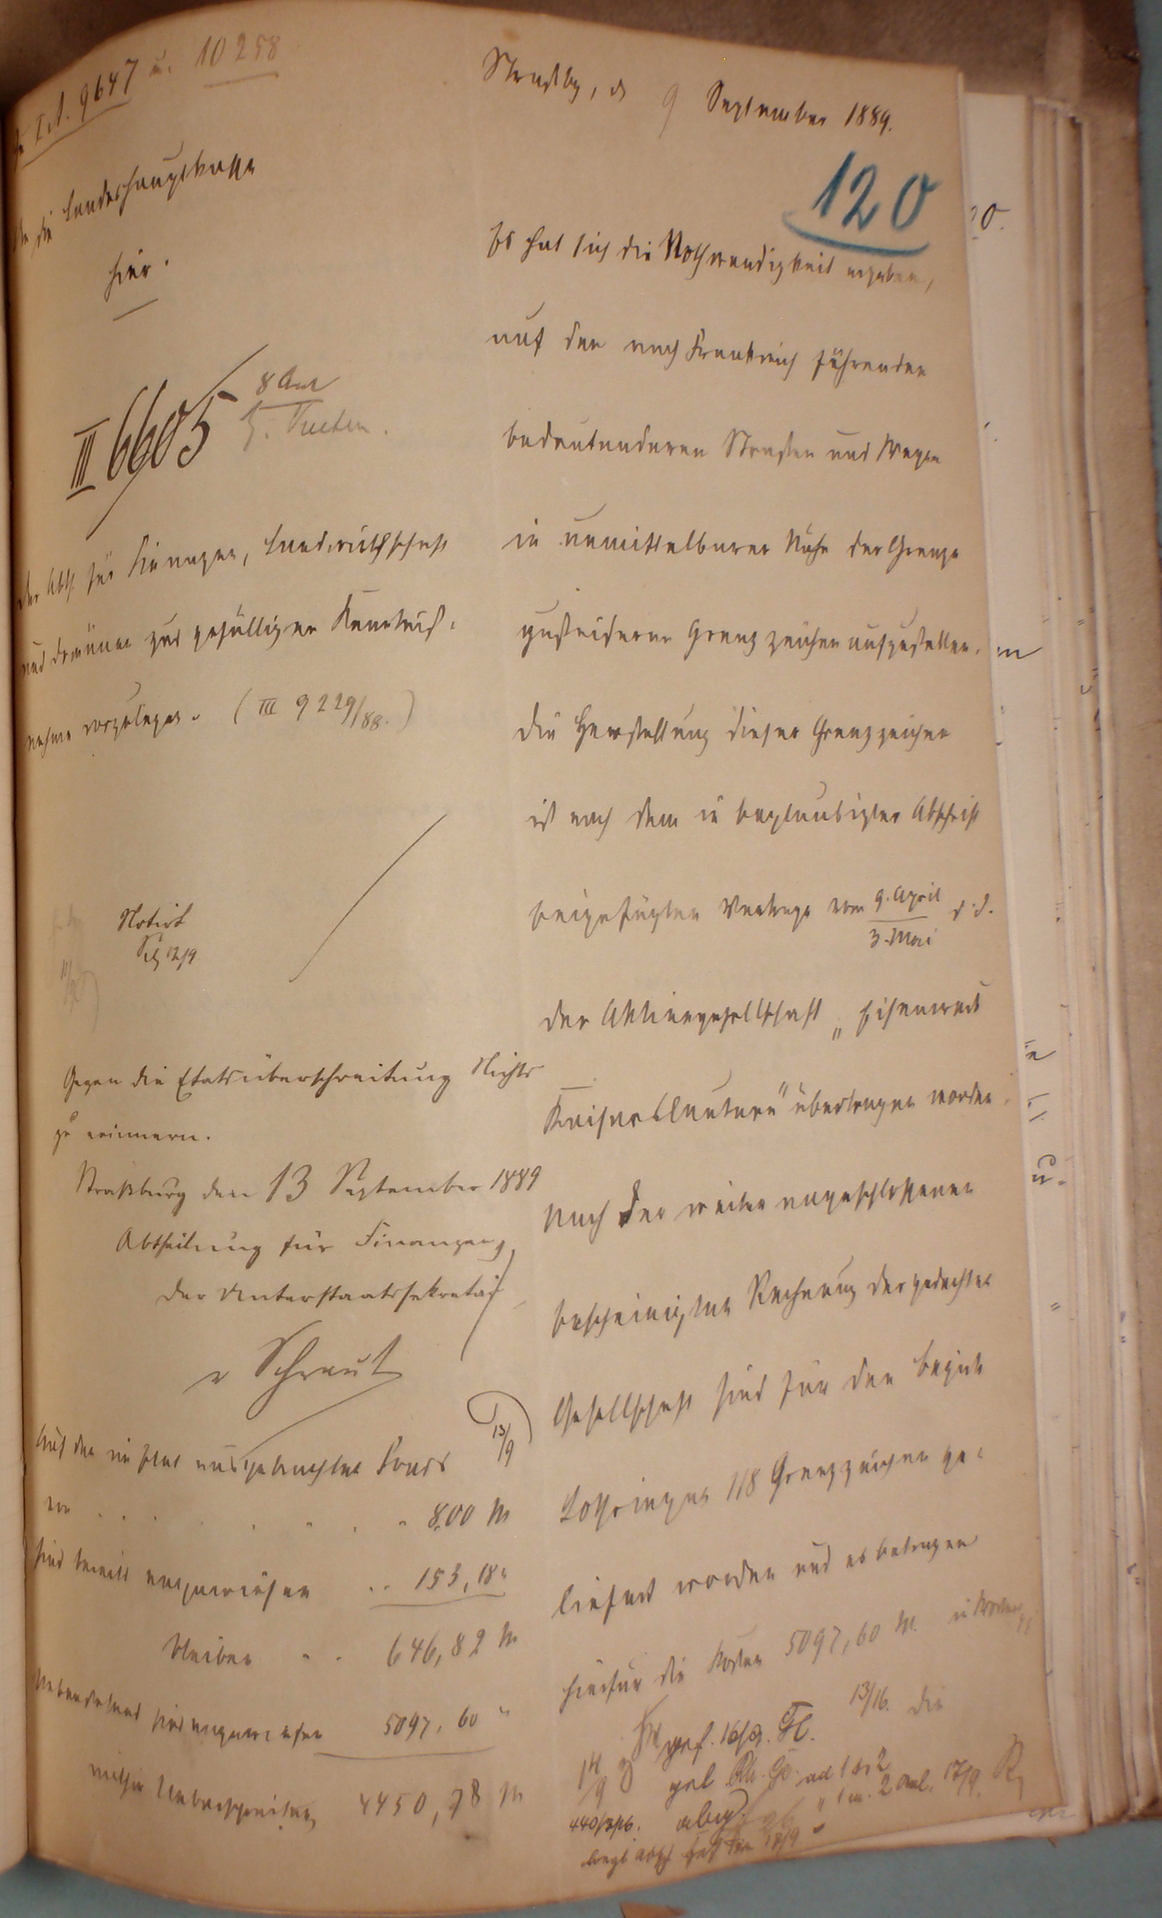 zu I.A. 9647 u. 10258
Straßbg, d 9 September 1889.
An die Landeshauptkasse
hier.
120
Es hat sich die Nothwendigkeit ergeben,
auf den nach Frankreich führenden
bedeutenderen Straßen und Wegen
in unmittelbarer Nähe der Grenze
gußeiserne Grenzzeichen aufzustellen.
Die Herstellung dieser Grenzzeichen
ist nach dem in beglaubigter Abschrift
beigefügten Vertrage vom 9. April
3. Mai d. J.
der Aktiengesellschaft „Eisenwerk
Kaiserslautern" übertragen worden.
Nach der weiter angeschlossenen
bescheinigten Rechnung der gedachten
Gesellschaft sind für den Bezirk
Lothringen 118 Grenzzeichen ge-
liefert worden und es betragen
hierfür die Kosten 5097,60 M. in Worten
III 6605
8 Anl
Der Abth. für Finanzen, Landwirthschaft
und Domänen zur gefälligen Kenntniß-
nahme vorzulegen. (III 9229/88.)
Notirt
12/9
Gegen die Etatsüberschreitung Nichts
zu erinnern.
Straßburg den 13 September 1889
Abtheilung für Finanzen
Der Unterstaatssekretär
v Schraut
13/9
Auf den im Etat ausgebrachten Fonds
von . . . . . . . 800 M
sind bereits angewiesen . . 153,18 "
bleiben . . 646,82 M
Nebenstehend sind angewiesen 5097,60 "
mithin Ueberschreitung 4450,78 M
14/9
gef. 16/9.
13/16. Die
ad 1 bis 2
2 Anl. 17/9.